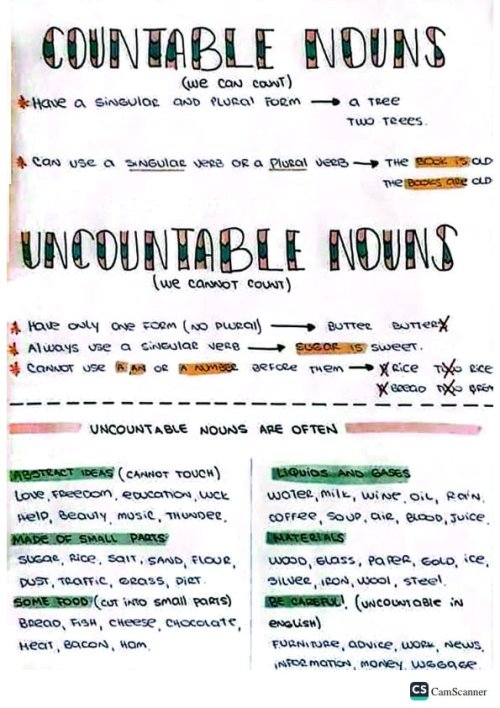 COUNTABLE NOUNS
(WE CAN COUNT)
* HAVE A SINGULAR AND PLURAL FORM → A TREE
TWO TREES.
* CAN USE A SINGULAR VERB OR A PLURAL VERB → THE BOOK IS OLD
THE BOOKS ARE OLD
UNCOUNTABLE NOUNS
(WE CANNOT COUNT)
* HAVE ONLY ONE FORM (NO PLURAL) → BUTTER BUTTERS
* ALWAYS USE A SINGULAR VERB → SUGAR IS SWEET.
* CANNOT USE A AN OR A NUMBER BEFORE THEM → A RICE TWO RICE
A BREAD TWO
UNCOUNTABLE NOUNS ARE OFTEN
ABSTRACT IDEAS (CANNOT TOUCH)
LOVE, FREEDOM, EDUCATION, LUCK
HELP, BEAUTY, MUSIC, THUNDER.
MADE OF SMALL PARTS
SUGAR, RICE, SALT, SAND, FLOUR,
DUST, TRAFFIC, GRASS, DIRT.
SOME FOOD (CUT INTO SMALL PARTS)
BREAD, FISH, CHEESE, CHOCOLATE,
MEAT, BACON, HAM.
LIQUIDS AND GASES
WATER, MILK, WINE, OIL, RAIN,
COFFEE, SOUP, AIR, BLOOD, JUICE.
MATERIALS
WOOD, GLASS, PAPER, GOLD, ICE,
SILVER, IRON, WOOL, STEEL.
BE CAREFUL! (UNCOUNTABLE IN
ENGLISH)
FURNITURE, ADVICE, WORK, NEWS,
INFORMATION, MONEY, LUGGAGE.
CS CamScanner